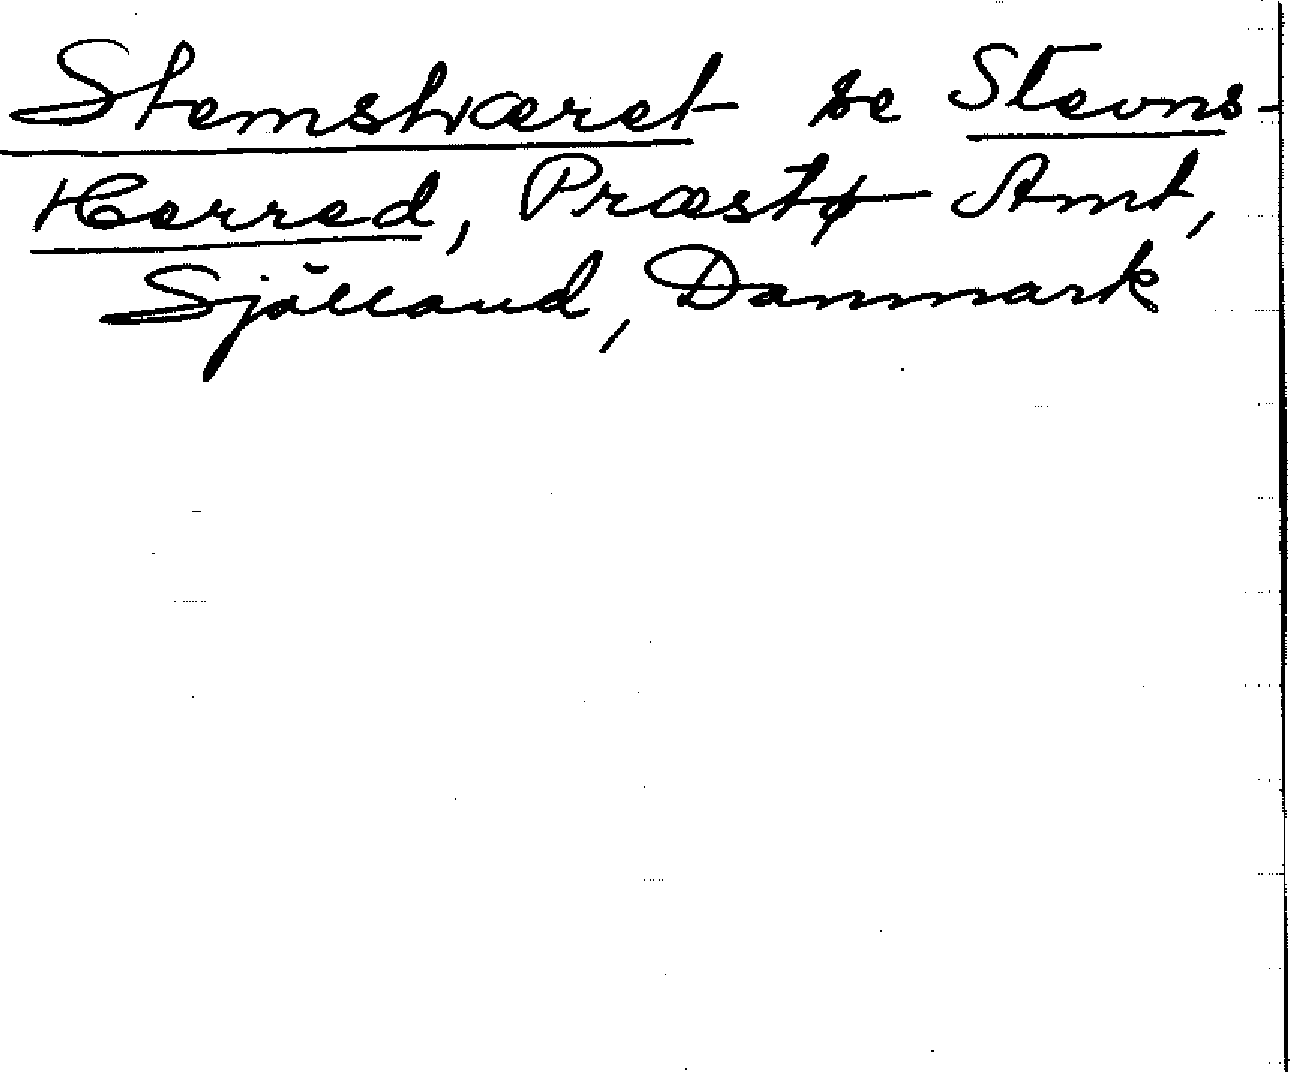 Stemshæret se Stevns-
Herred, Præstø Amt,
Själland, Danmark